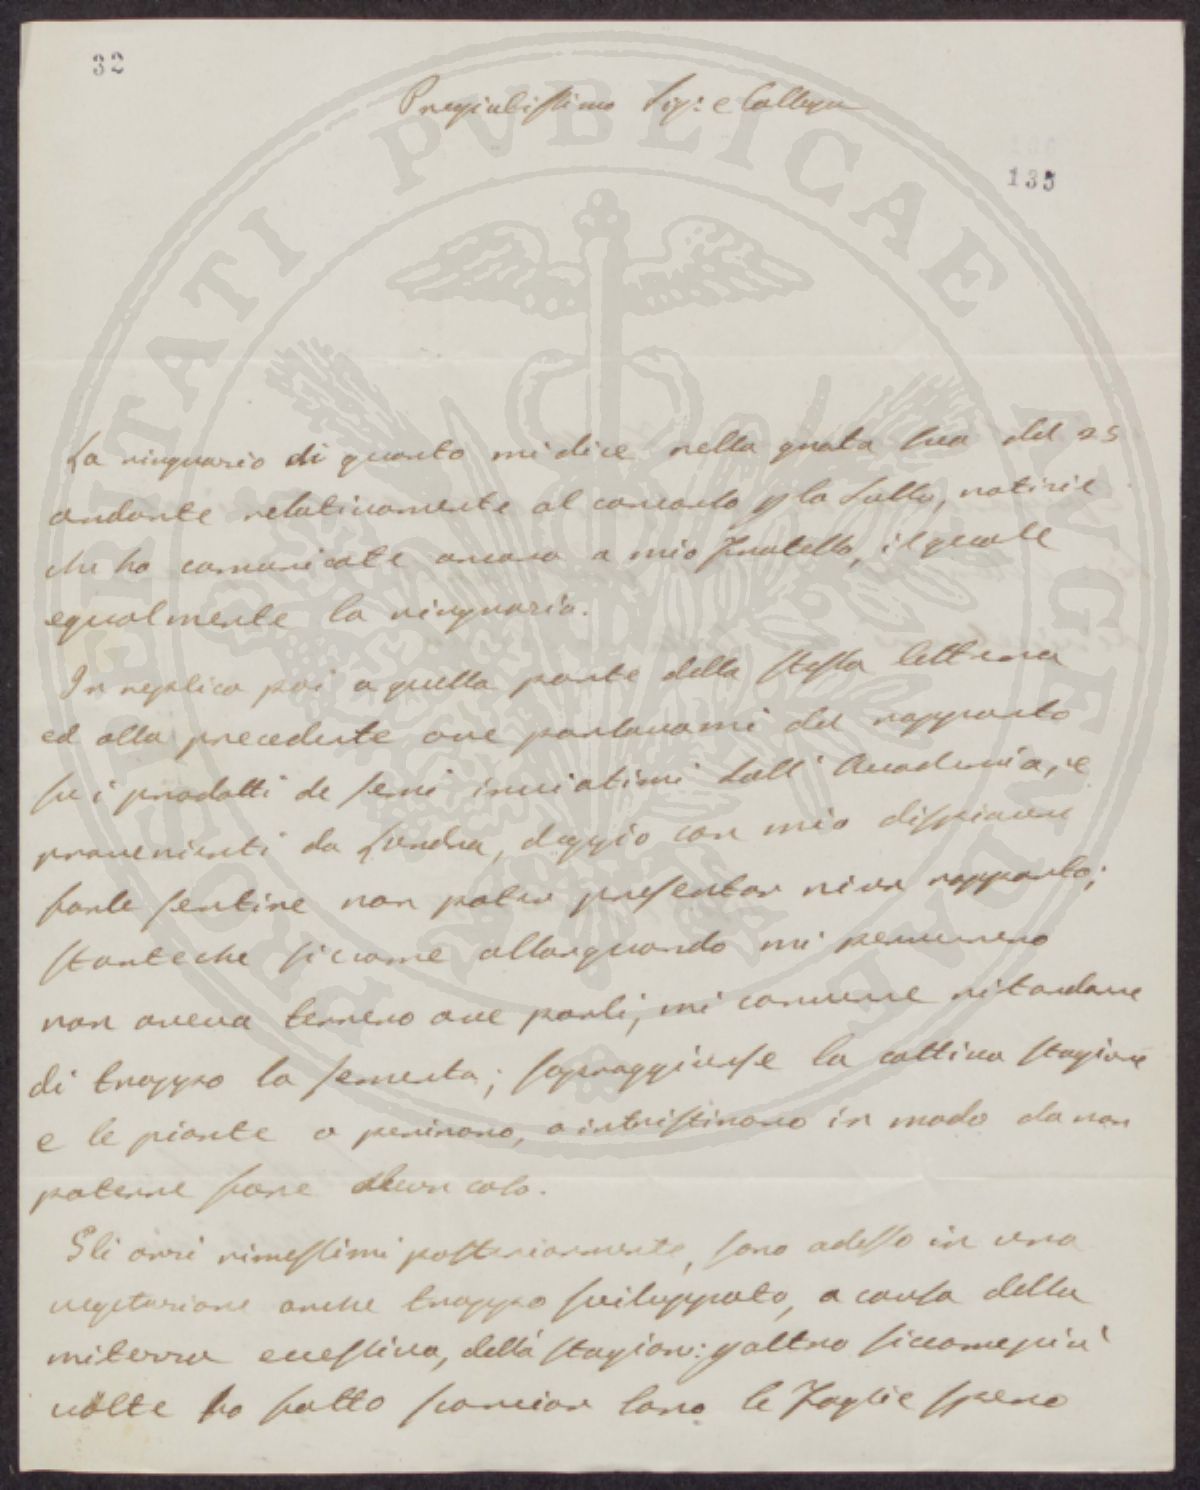 32
Pregiatissimo Sig: e Collega
135
La ringrazio di quanto mi dice nella grata sua del 25
andante relativamente al concorso p la Lulla, notizie
che ho comunicate ancora a mio Fratello, il quale
egualmente la ringrazia.
In replica poi a quella parte della stessa lettera
ed alla precedente ove parlavami del rapporto
su i prodotti de semi inviatimi dall' Accademia, e
provenienti da Londra, deggio con mio dispiacere
farle sentire non poter presentar niun rapporto;
stanteche siccome allorquando mi pervennero
non aveva terreno ove porli, mi convenne ritardare
di troppo la sementa; sopraggiunse la cattiva stagione
e le piante o perirono, o intristirono in modo da non
poterne fare alcun calo.
Gli orzi rimessimi posteriormente, sono adesso in una
vegetazione anche troppo sviluppata, a causa della
mitezza eccessiva, della stagione: p altro siccome più
volte ho fatto scorciar loro le Foglie spero
PROSPERITATI PVBLICAE AVGENDAE